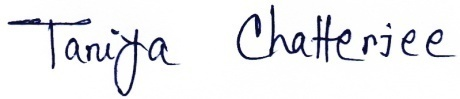 Taniya Chatterjee